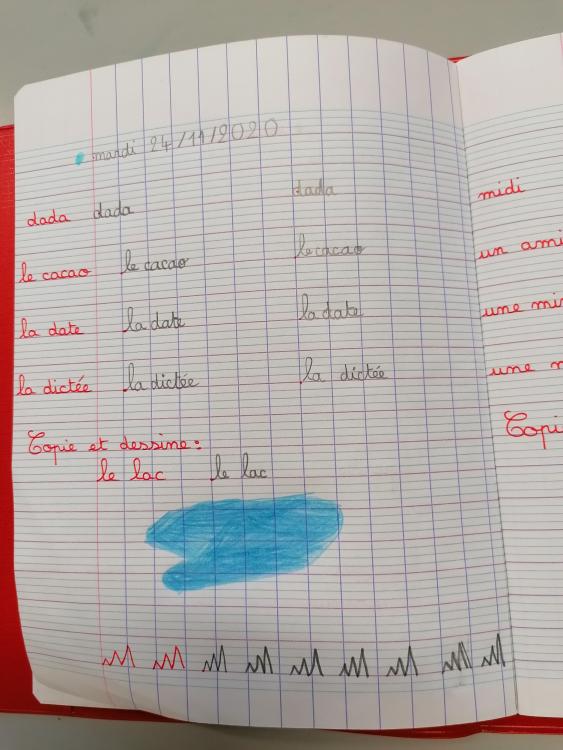 mardi 24/11/2020
dada dada dada
le cacao le cacao le cacao
la date la date la date
la dictée la dictée la dictée
Copie et dessine :
le lac le lac
midi
un ami
une
une